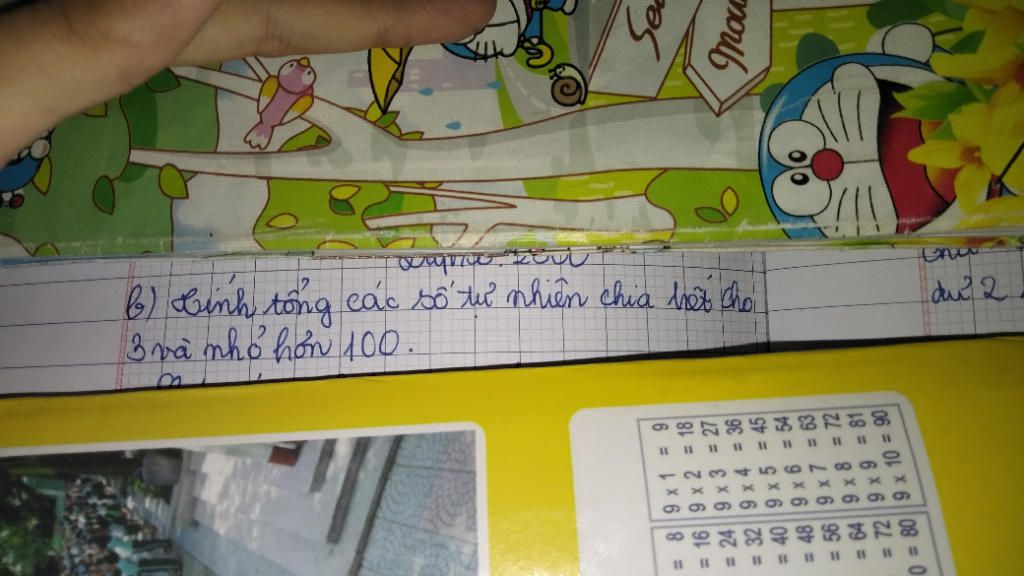 b) Tính tổng các số tự nhiên chia hết cho
3 và nhỏ hơn 100.
dư 2
9 x 1 = 9
9 x 2 = 18
9 x 3 = 27
9 x 4 = 36
9 x 5 = 45
9 x 6 = 54
9 x 7 = 63
9 x 8 = 72
9 x 9 = 81
9 x 10 = 90
= 8
= 16
= 24
= 32
= 40
= 48
= 56
= 64
= 72
0 = 80